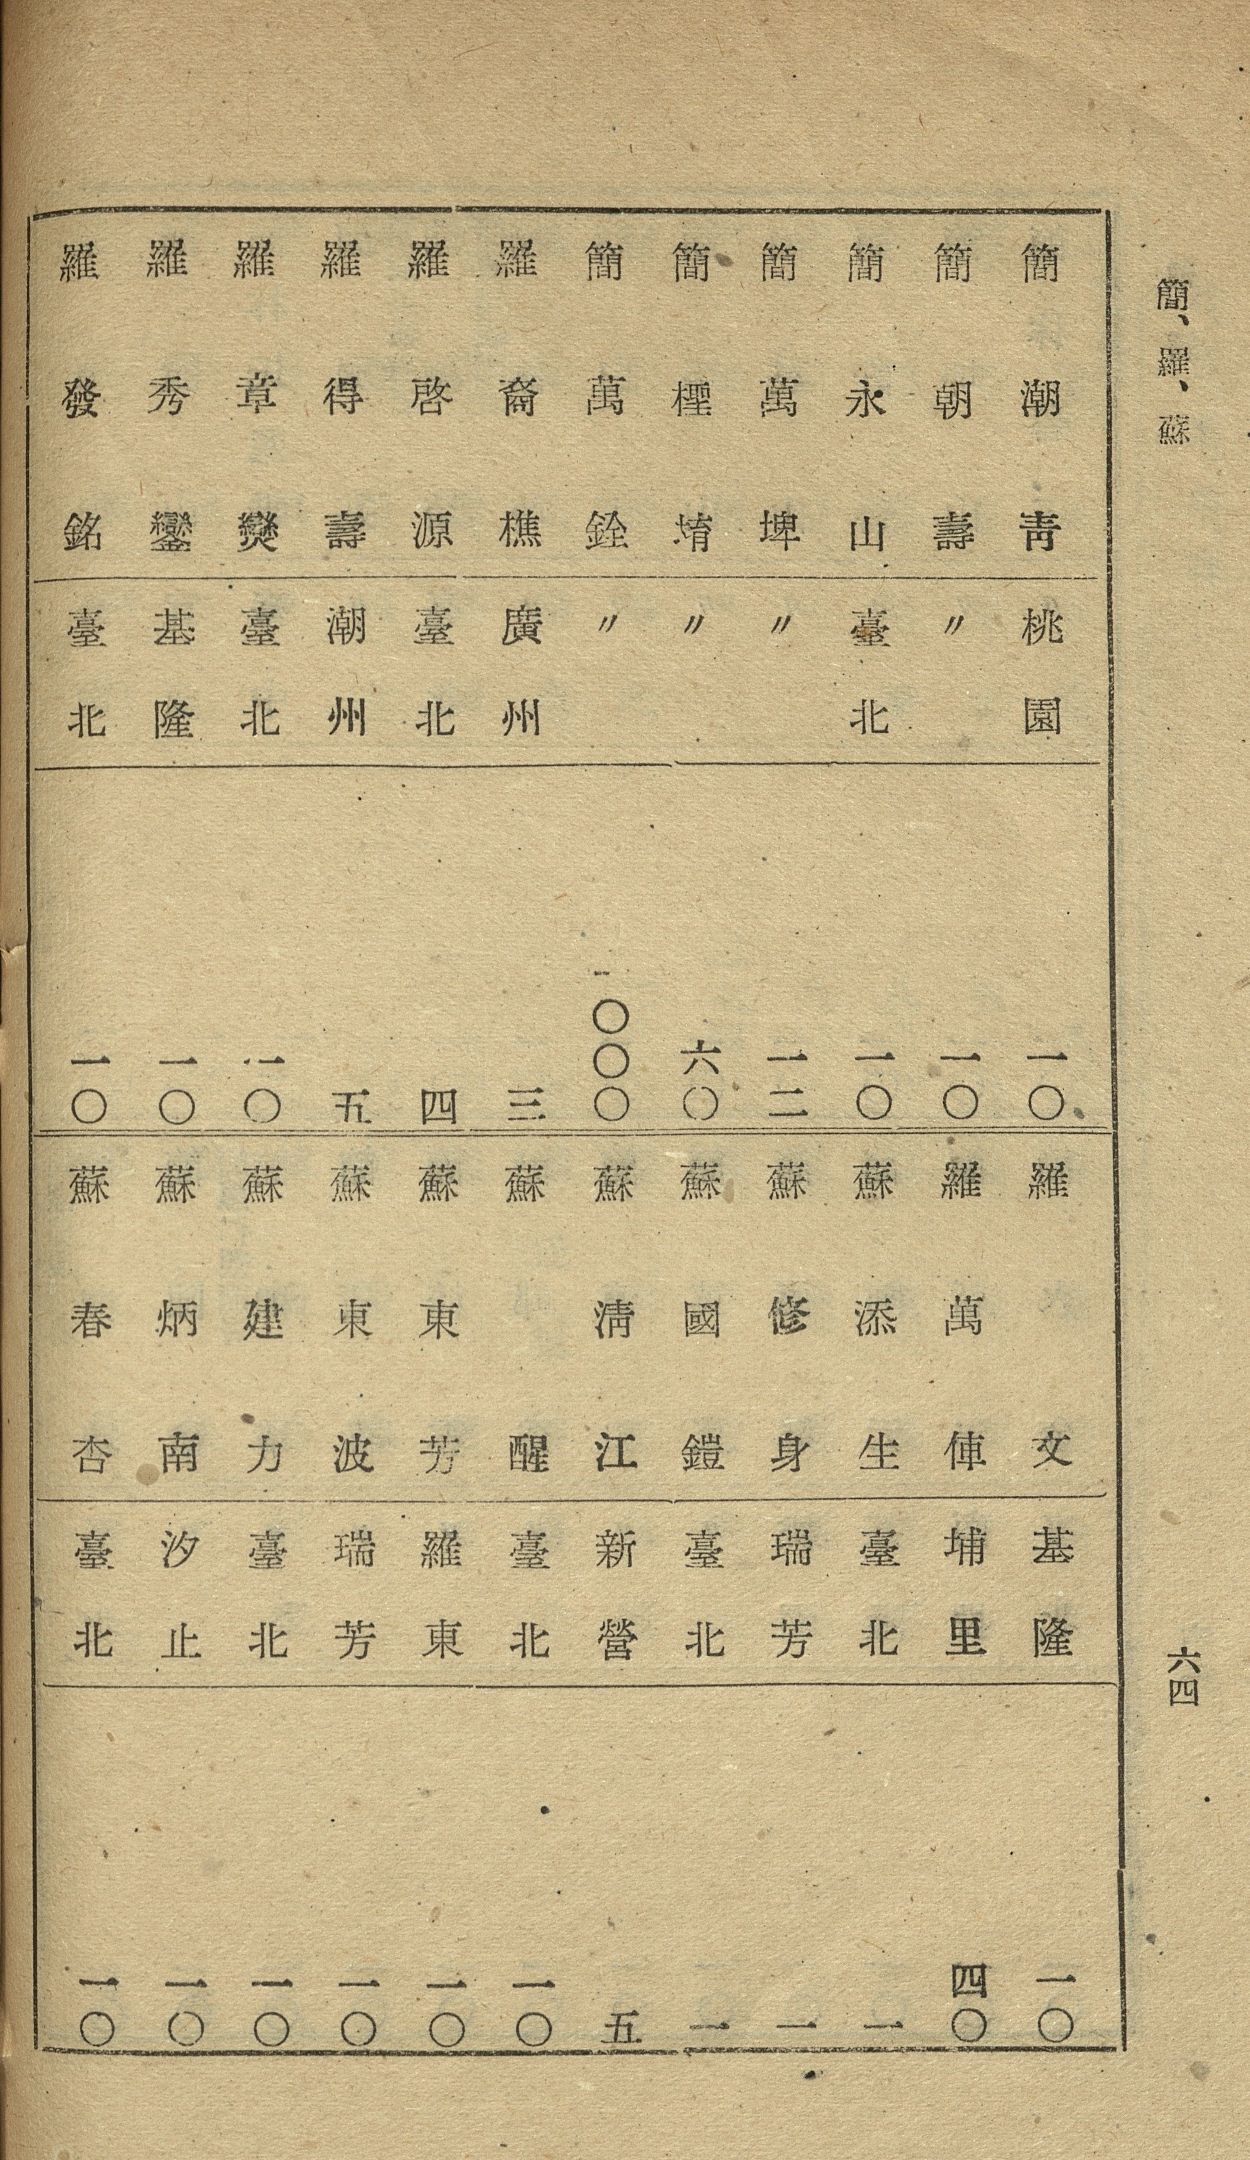 簡、羅、蘇
簡潮靑 桃園 一〇
簡朝壽 〃 一〇
簡永山 臺北 一〇
簡萬埤 〃 一二
簡 〃 六〇
簡萬銓 〃 一〇〇〇
羅裔樵 廣州 三
羅啓源 臺北 四
羅得壽 潮州 五
羅章爕 臺北 一〇
羅秀鑾 基隆 一〇
羅發銘 臺北 一〇
羅文 基隆 一〇
羅萬俥 埔里 四〇
蘇添生 臺北 一
蘇修身 瑞芳 一
蘇國鎧 臺北 一
蘇淸江 新營 五
蘇醒 臺北 一〇
蘇東芳 羅東 一〇
蘇東波 瑞芳 一〇
蘇建力 臺北 一〇
蘇炳南 汐止 一〇
蘇春杏 臺北 一〇
六四